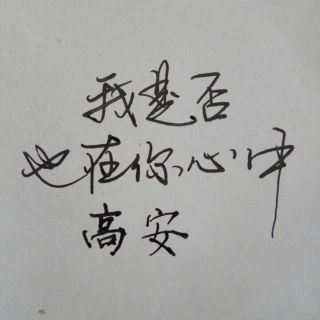 我是否
也在你心中
高安